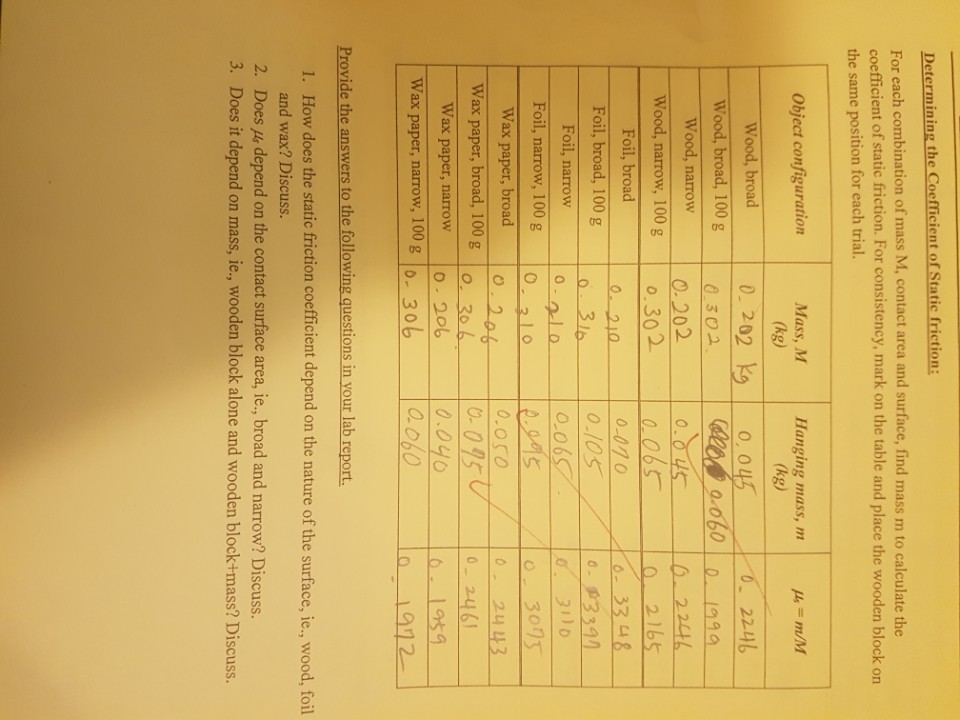 Determining the Coefficient of Static friction:
For each combination of mass M, contact area and surface, find mass m to calculate the
coefficient of static friction. For consistency, mark on the table and place the wooden block on
the same position for each trial.
Object configuration Mass, M (kg) Hanging mass, m (kg) μs = m/M
Wood, broad 0.202 kg 0.045 0.2246
Wood, broad, 100 g 0.302 0.060 0.1999
Wood, narrow 0.202 0.045 0.2246
Wood, narrow, 100 g 0.302 0.065 0.2165
Foil, broad 0.210 0.070 0.3348
Foil, broad, 100 g 0.310 0.105 0.3397
Foil, narrow 0.210 0.065 0.3110
Foil, narrow, 100 g 0.310 0.095 0.3075
Wax paper, broad 0.206 0.050 0.2443
Wax paper, broad, 100 g 0.306 0.095 0.2461
Wax paper, narrow 0.206 0.040 0.1959
Wax paper, narrow, 100 g 0.306 0.060 0.1972
Provide the answers to the following questions in your lab report.
1. How does the static friction coefficient depend on the nature of the surface, ie., wood, foil
and wax? Discuss.
2. Does μs depend on the contact surface area, ie., broad and narrow? Discuss.
3. Does it depend on mass, ie., wooden block alone and wooden block+mass? Discuss.